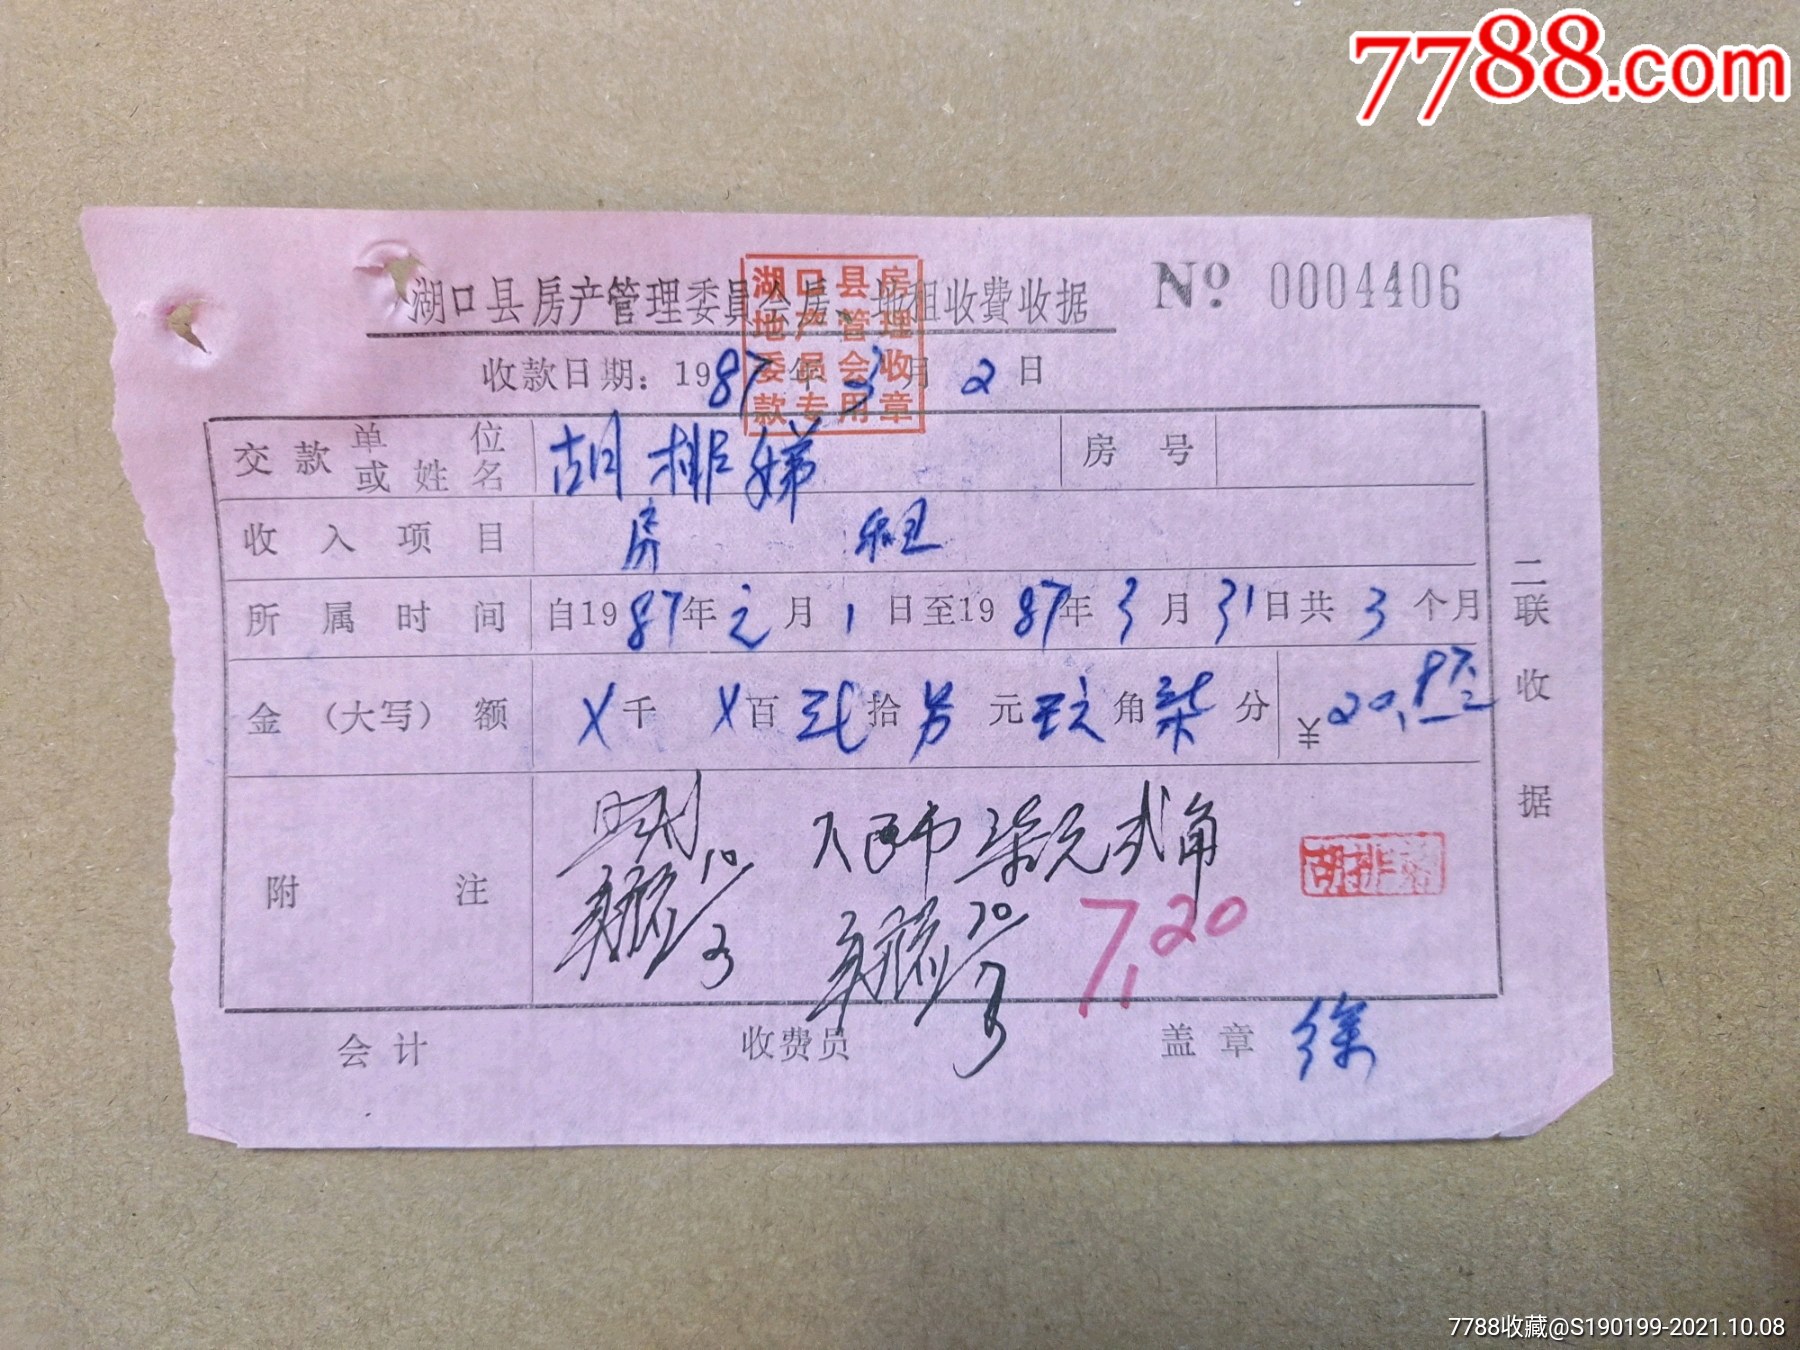 7788.com
湖口县房产管理委員会房、地租收費收据
№ 0004406
湖口县房
地产管理
委员会收
款专用章
收款日期：1987年3月2日
交款单位或姓名 胡排娣 房号
收入项目 房租
所属时间 自1987年元月1日至1987年3月31日共3个月
金（大写）额 X千X百 拾 元 角柒分 ¥20.
附注
人民币柒元贰角
7,20
会计 收费员 盖章 徐
二联收据
7788收藏@S190199-2021.10.08